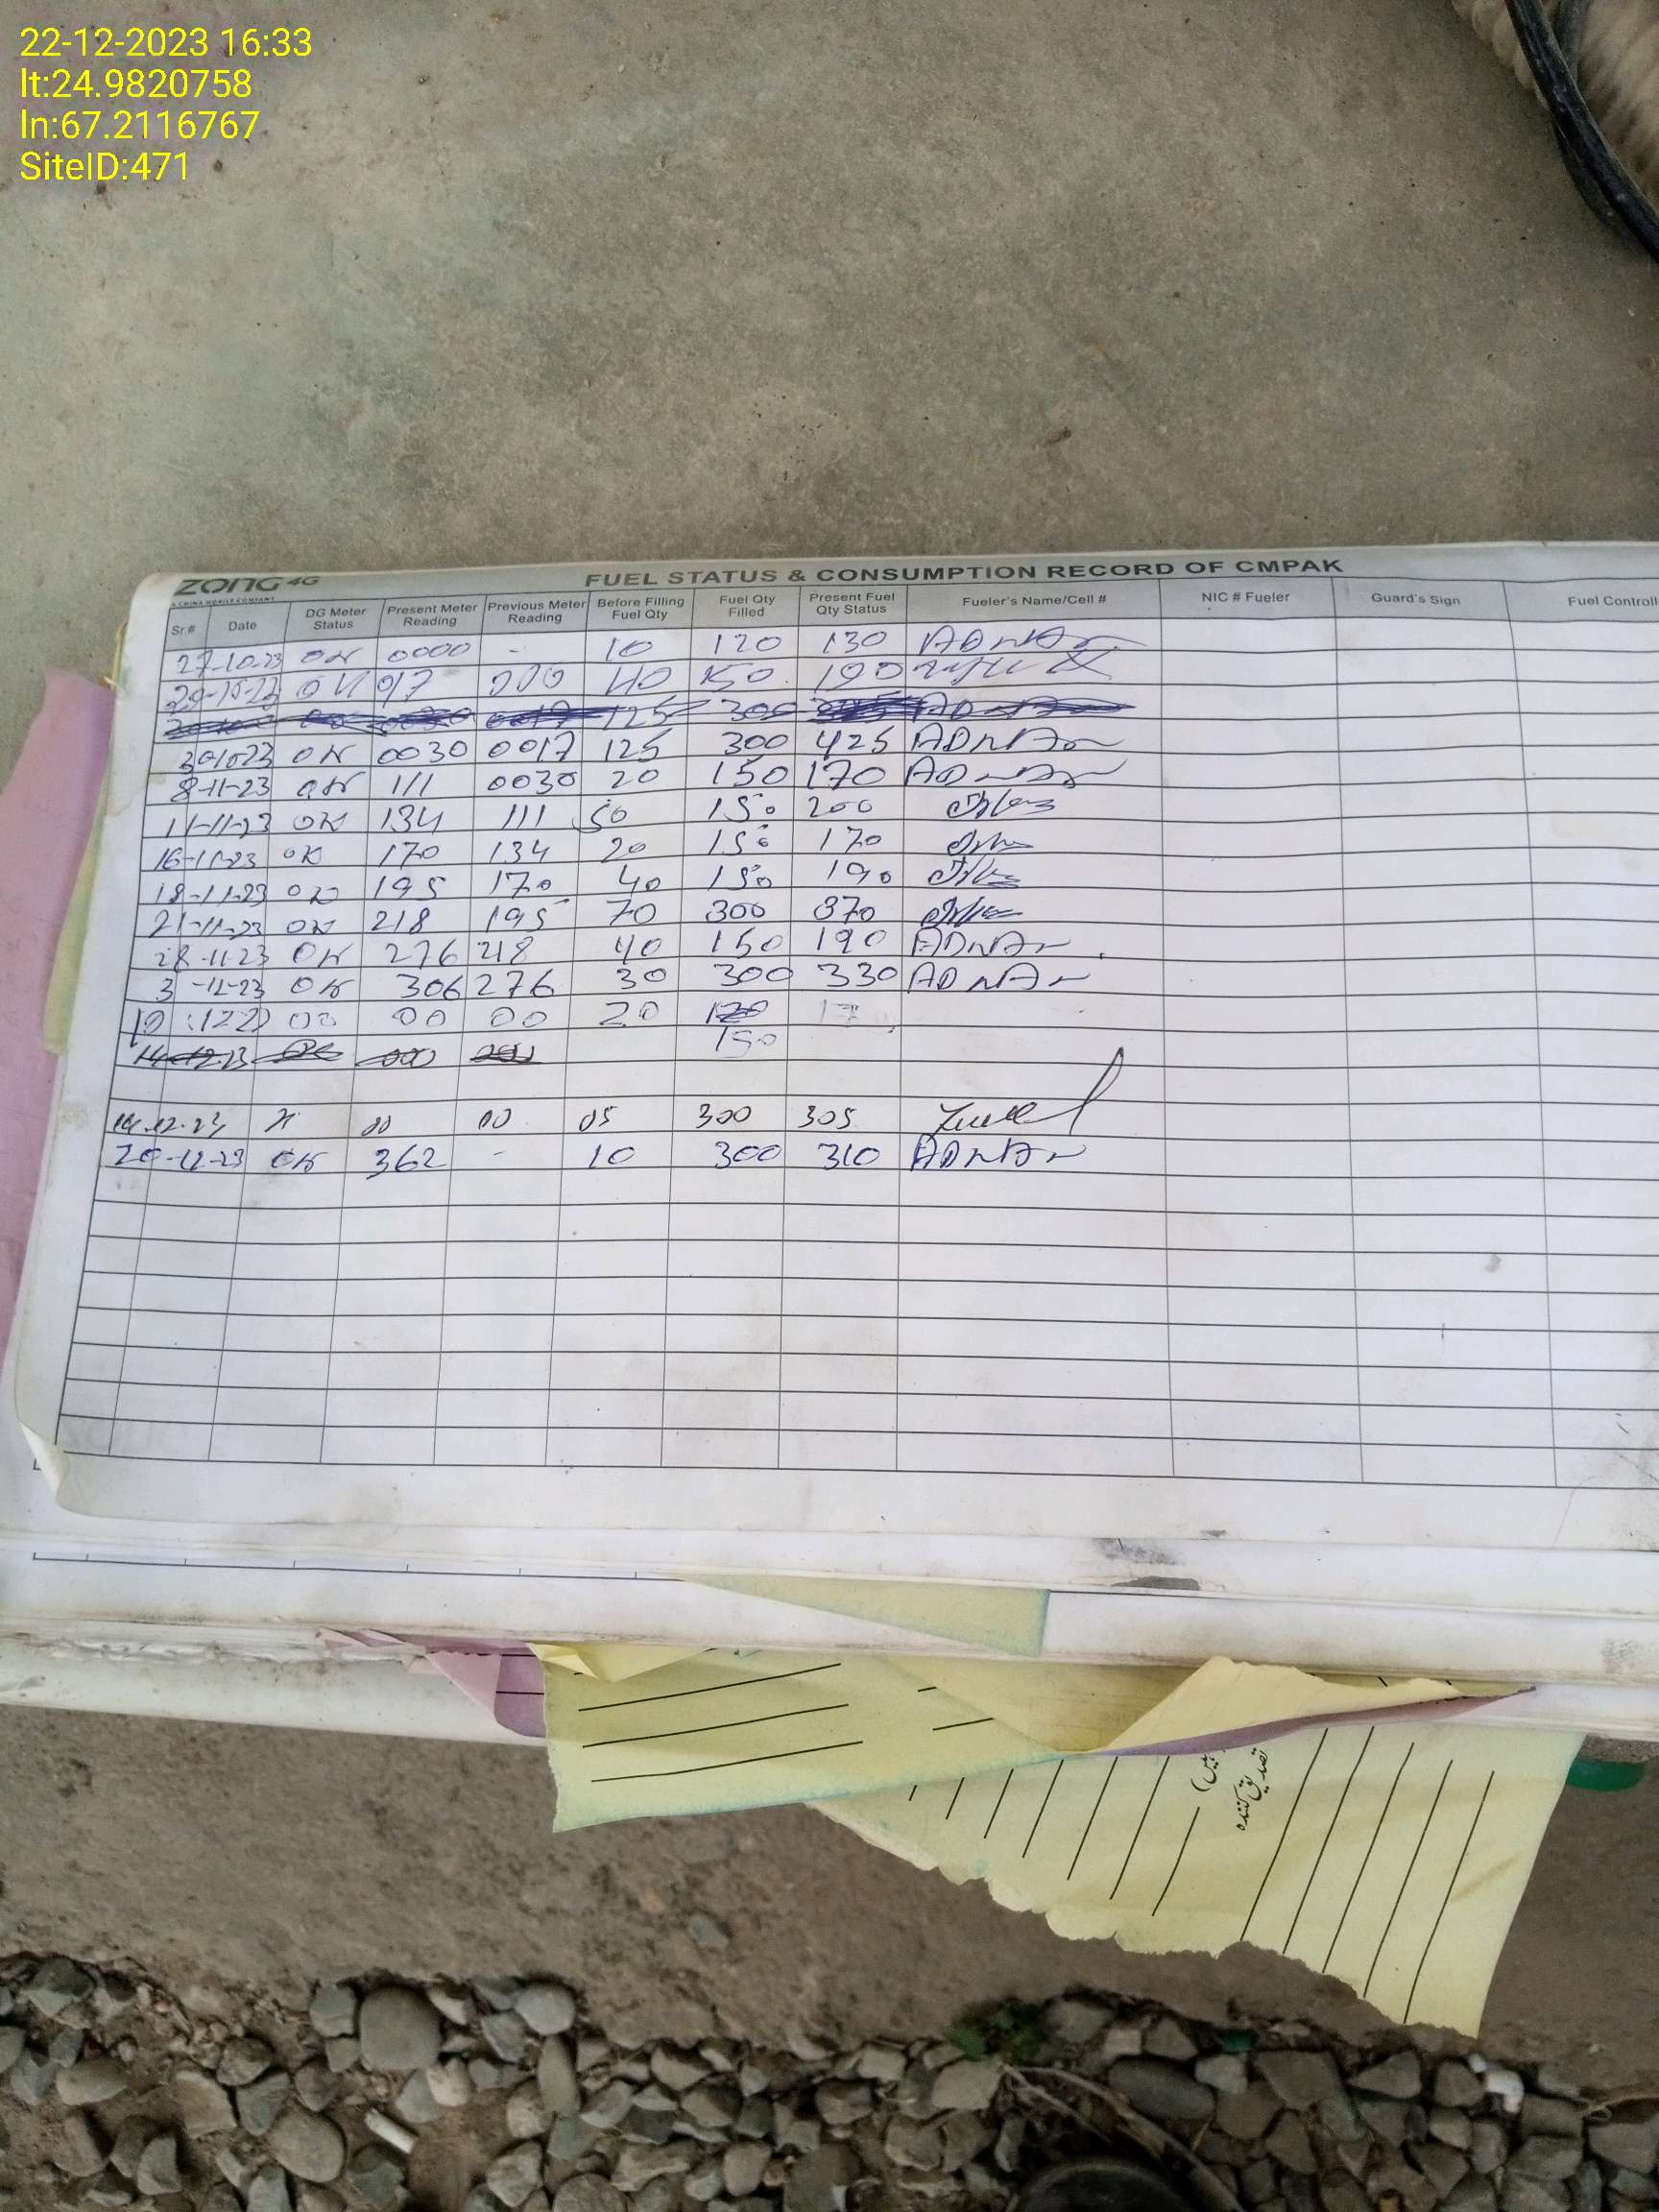 22-12-2023 16:33
lt:24.9820758
ln:67.2116767
SiteID:471
ZONG 4G FUEL STATUS & CONSUMPTION RECORD OF CMPAK
A CHINA MOBILE COMPANY
Sr.# Date DG Meter Status Present Meter Reading Previous Meter Reading Before Filling Fuel Qty Fuel Qty Filled Present Fuel Qty Status Fueler's Name/Cell # NIC # Fueler Guard's Sign Fuel Controll
27-10-23 OK 0000 - 10 120 130 ADNAN
29-10-23 OK 017 000 40 150 190
0017 125 300
30-10-23 OK 0030 0017 125 300 425 ADNAN
8-11-23 OK 111 0030 20 150 170 ADNAN
11-11-23 OK 134 111 50 150 200
16-11-23 OK 170 134 20 150 170
18-11-23 OK 195 170 40 150 190
21-11-23 OK 218 195 70 300 370
28-11-23 OK 276 218 40 150 190 ADNAN
3-12-23 OK 306 276 30 300 330 ADNAN
00 00 00 20 120
150
14-12-23 000
14.12.23 00 00 05 300 305
20-12-23 OK 362 - 10 300 310 ADNAN
تصدیق کنندہ